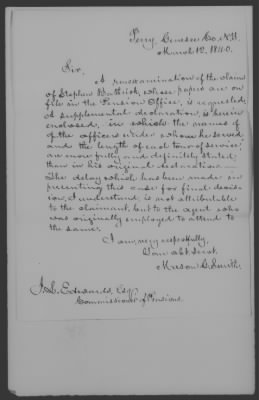 Perry, Genesee Co. N.Y.
March 12, 1840.
Sir,
A reexamination of the claim
of Stephen Bathrick, whose papers are on
file in the Pension Office, is requested.
A supplemental declaration, is herein
enclosed, in which the names of
of the officers under whom he served
and the length of each tour of service,
are more fully and definitely stated,
than in his original declaration.
The delay which has been made in
presenting this case for final decis-
ion, I understand, is not attributable
to the claimant, but to the agent who
was originally employed to attend to
the same.
I am, very respectfully,
Your obt. Servt.
Smith.
J. L. Edwards, Esqr.
Commissioner of Pensions.